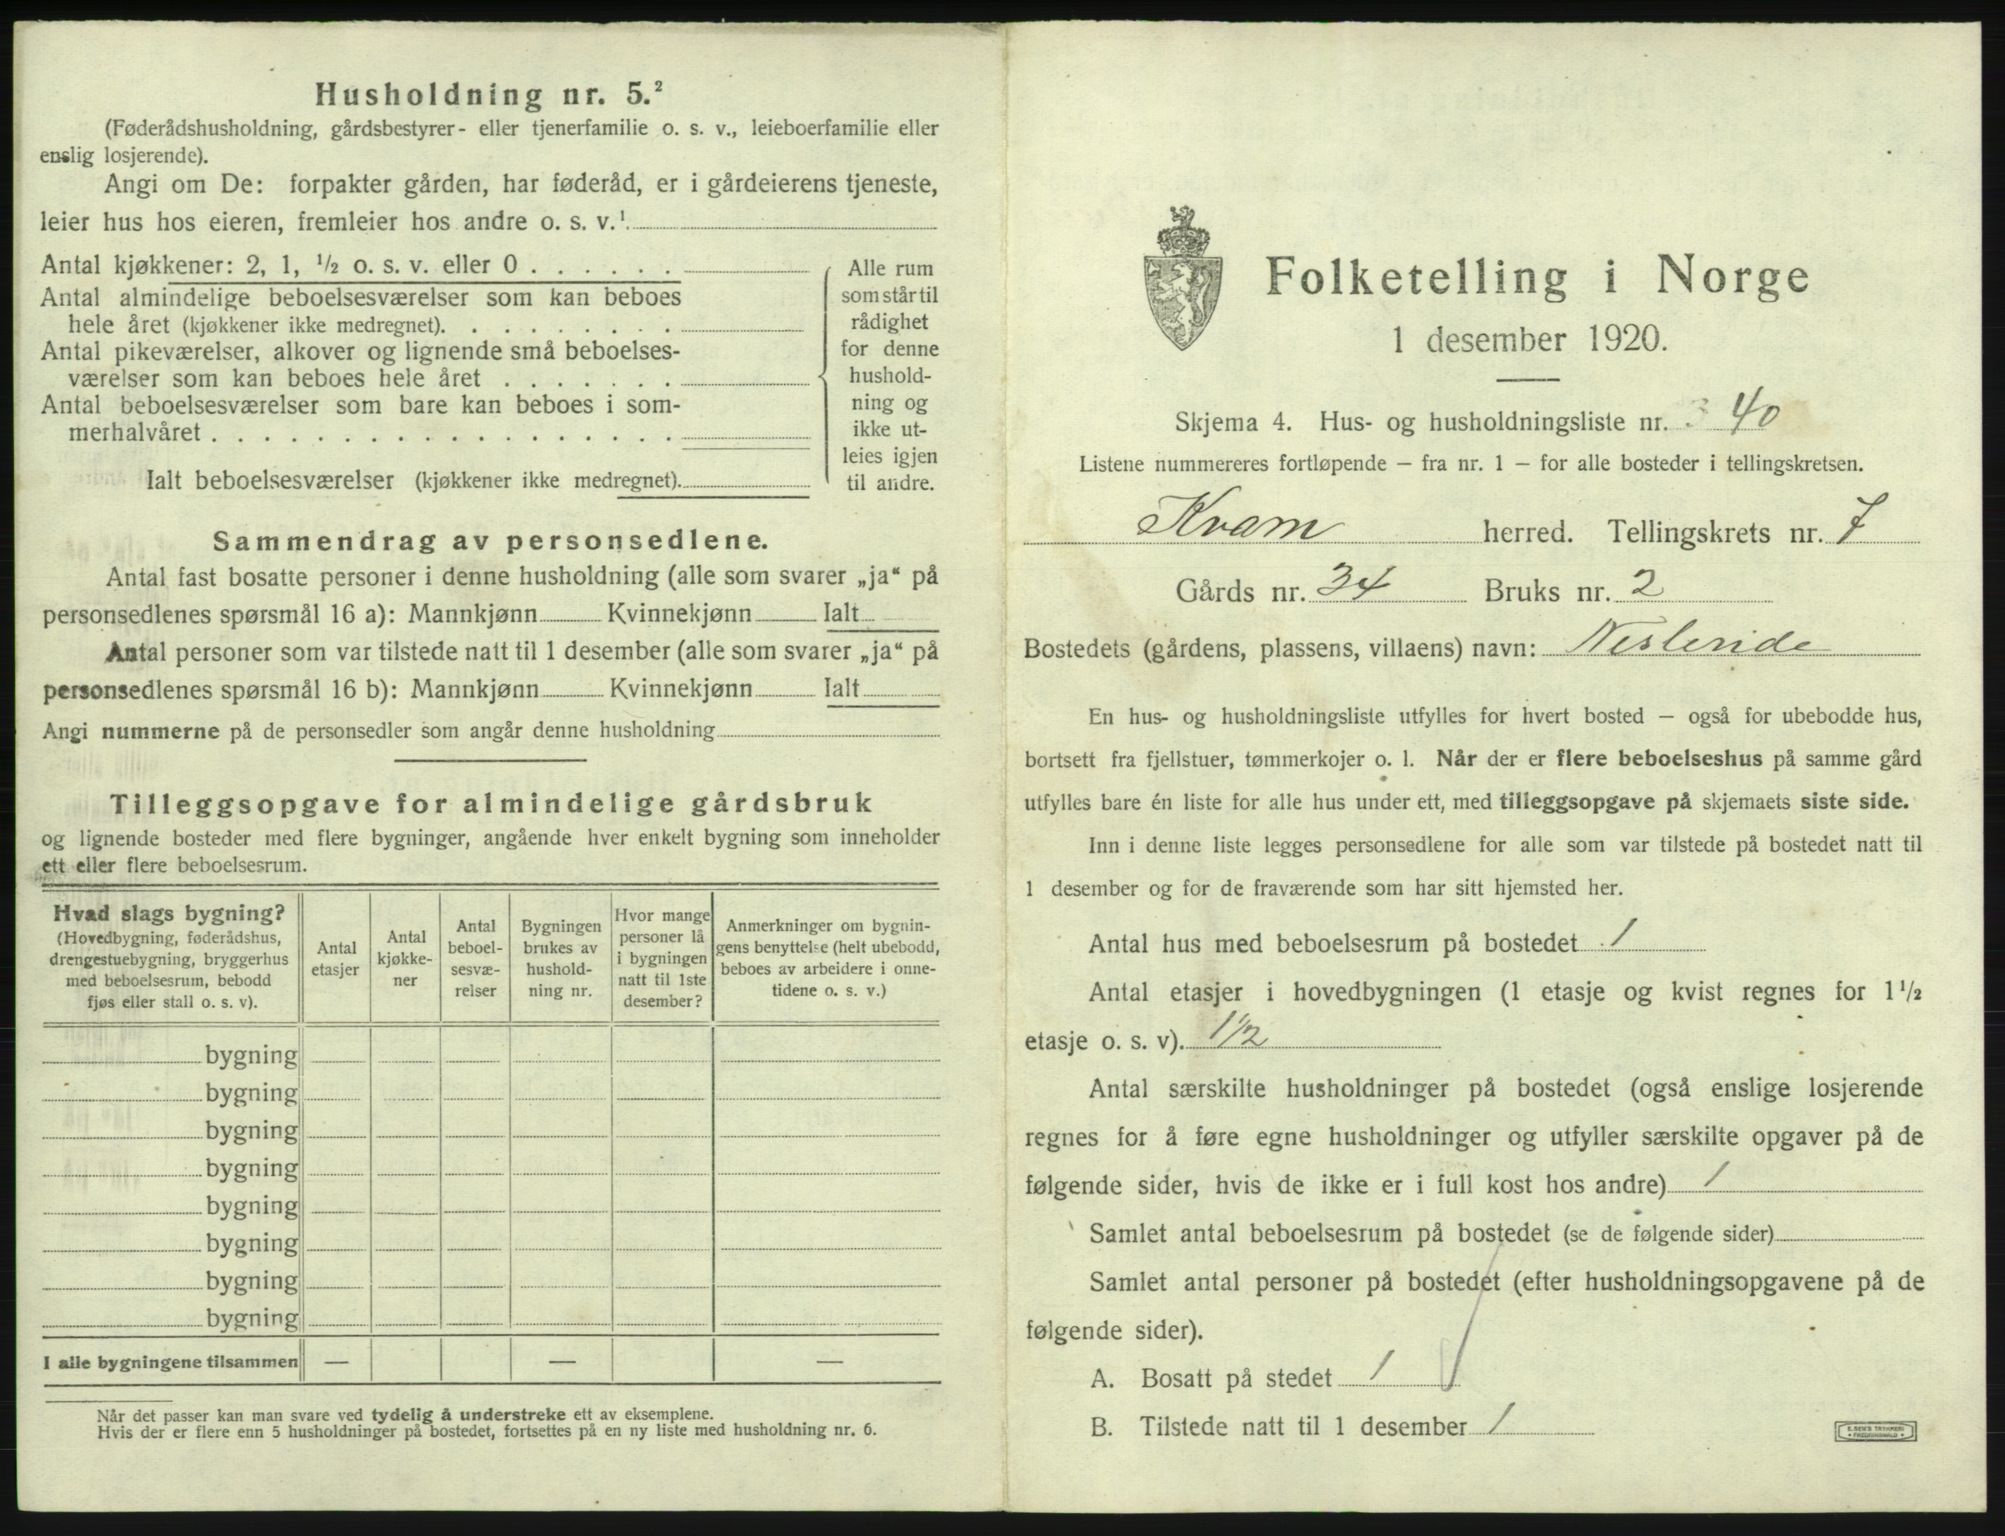 Husholdning nr. 5.²
(Føderådshusholdning, gårdsbestyrer- eller tjenerfamilie o. s. v., leieboerfamilie eller
enslig losjerende).
Angi om De: forpakter gården, har føderåd, er i gårdeierens tjeneste,
leier hus hos eieren, fremleier hos andre o. s. v.¹
Antal kjøkkener: 2, 1, ½ o. s. v. eller 0 . . . . . .
Antal almindelige beboelsesværelser som kan beboes
hele året (kjøkkener ikke medregnet). . . . . . . . .
Antal pikeværelser, alkover og lignende små beboelses-
værelser som kan beboes hele året . . . . . . .
Antal beboelsesværelser som bare kan beboes i som-
merhalvåret . . . . . . . . . . . . . . . . . .
Ialt beboelsesværelser (kjøkkener ikke medregnet).
Alle rum
som står til
rådighet
for denne
hushold-
ning og
ikke ut-
leies igjen
til andre.
Sammendrag av personsedlene.
Antal fast bosatte personer i denne husholdning (alle som svarer „ja“ på
personsedlenes spørsmål 16 a): Mannkjønn Kvinnekjønn Ialt
Antal personer som var tilstede natt til 1 desember (alle som svarer „ja“ på
personsedlenes spørsmål 16 b): Mannkjønn Kvinnekjønn Ialt
Angi nummerne på de personsedler som angår denne husholdning
Tilleggsopgave for almindelige gårdsbruk
og lignende bosteder med flere bygninger, angående hver enkelt bygning som inneholder
ett eller flere beboelsesrum.
Hvad slags bygning?
(Hovedbygning, føderådshus,
drengestuebygning, bryggerhus
med beboelsesrum, bebodd
fjøs eller stall o. s. v).
Antal
etasjer
Antal
kjøkke-
ner
Antal
beboel-
sesvæ-
relser
Bygningen
brukes av
hushold-
ning nr.
Hvor mange
personer lå
i bygningen
natt til 1ste
desember?
Anmerkninger om bygnin-
gens benyttelse (helt ubebodd,
beboes av arbeidere i onne-
tidene o. s. v.)
bygning
bygning
bygning
bygning
bygning
bygning
bygning
bygning
I alle bygningene tilsammen — — —
Når det passer kan man svare ved tydelig å understreke ett av eksemplene.
Hvis der er flere enn 5 husholdninger på bostedet, fortsettes på en ny liste med husholdning nr. 6.
Folketelling i Norge
1 desember 1920.
Skjema 4. Hus- og husholdningsliste nr. 40
Listene nummereres fortløpende – fra nr. 1 – for alle bosteder i tellingskretsen.
Kvam herred. Tellingskrets nr. 7
Gårds nr. 34 Bruks nr. 2
Bostedets (gårdens, plassens, villaens) navn:
En hus- og husholdningsliste utfylles for hvert bosted – også for ubebodde hus,
bortsett fra fjellstuer, tømmerkojer o. l. Når der er flere beboelseshus på samme gård
utfylles bare én liste for alle hus under ett, med tilleggsopgave på skjemaets siste side.
Inn i denne liste legges personsedlene for alle som var tilstede på bostedet natt til
1 desember og for de fraværende som har sitt hjemsted her.
Antal hus med beboelsesrum på bostedet 1
Antal etasjer i hovedbygningen (1 etasje og kvist regnes for 1½
etasje o. s. v). 1½
Antal særskilte husholdninger på bostedet (også enslige losjerende
regnes for å føre egne husholdninger og utfyller særskilte opgaver på de
følgende sider, hvis de ikke er i full kost hos andre) 1
Samlet antal beboelsesrum på bostedet (se de følgende sider)
Samlet antal personer på bostedet (efter husholdningsopgavene på de
følgende sider).
A. Bosatt på stedet 1
B. Tilstede natt til 1 desember 1